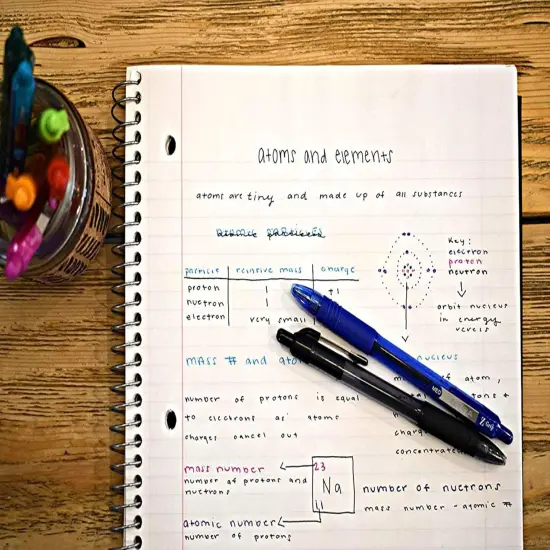 atoms and elements
atoms are tiny and made up of all substances
atomic particles
particle relative mass charge
proton 1 +1
nuetron 1
electron very small
Key:
electron
proton
neutron
orbit nucleus
in energy
MASS # and ato
nucleus
of atom,
number of protons is equal
to electrons as atoms
charges cancel out
concentrate
mass number
number of protons and
nuetrons
23
Na
11
number of nuetrons
mass number - atomic #
atomic number
number of protons